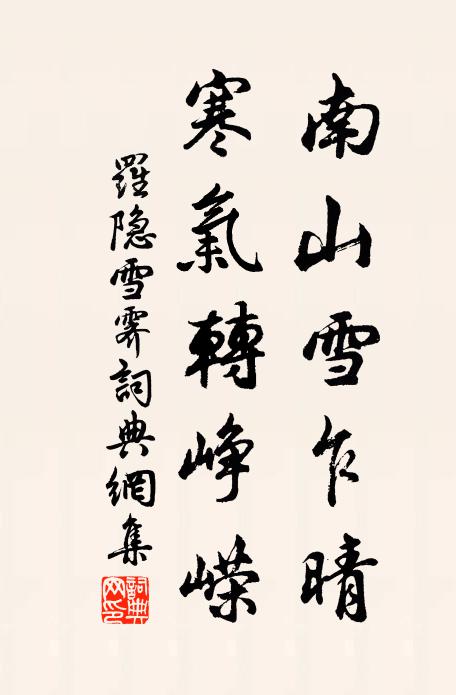 南山雪乍晴
寒氣轉崢嶸
羅隐雪霽詞典網集
詞典網印